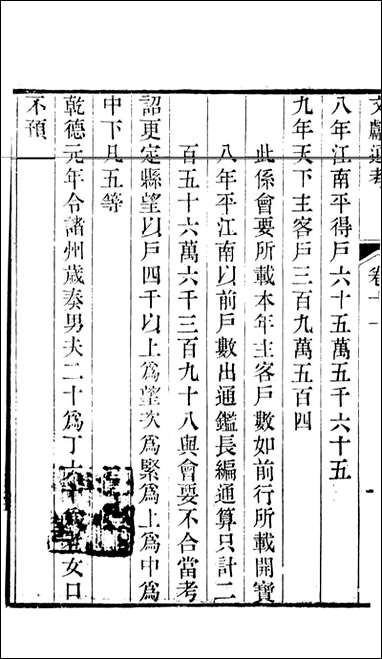 文獻通考 卷十一
八年江南平得戶六十五萬五千六十五
九年天下主客戶三百九萬五百四
此係會要所載本年主客戶數如前行所載開寶
八年平江南以前戶數出通鑑長編通算只計二
百五十六萬六千三百九十八與會要不合當考
詔更定縣望以戶四千以上爲望次爲緊爲上爲中爲
中下凡五等
乾德元年令諸州歲奏男夫二十爲丁六十爲老女口
不預